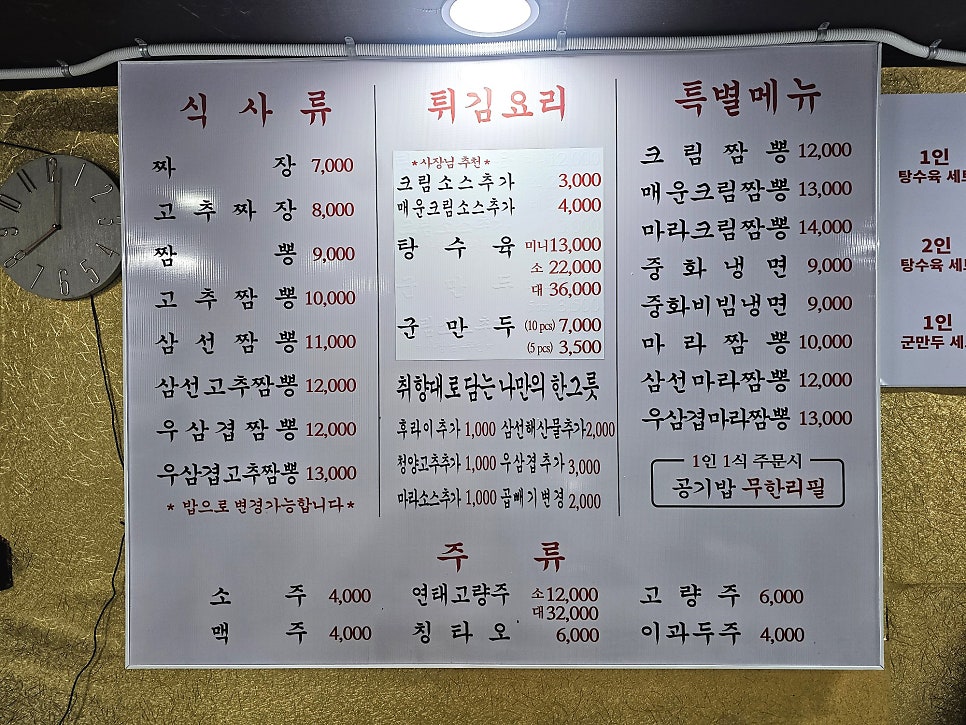 식 사 류
짜 장 7,000
고 추 짜 장 8,000
짬 뽕 9,000
고 추 짬 뽕 10,000
삼 선 짬 뽕 11,000
삼선고추짬뽕 12,000
우 삼 겹 짬 뽕 12,000
우삼겹고추짬뽕 13,000
* 밥으로 변경가능합니다 *
튀김요리
* 사장님 추천 *
크림소스추가 3,000
매운크림소스추가 4,000
탕 수 육 미니 13,000
소 22,000
대 36,000
군 만 두 (10 pcs) 7,000
(5 pcs) 3,500
취향대로 담는 나만의 한그릇
후라이추가 1,000 삼선해산물추가 2,000
청양고추추가 1,000 우삼겹추가 3,000
마라소스추가 1,000 곱빼기변경 2,000
특별메뉴
크 림 짬 뽕 12,000
매운크림짬뽕 13,000
마라크림짬뽕 14,000
중 화 냉 면 9,000
중화비빔냉면 9,000
마 라 짬 뽕 10,000
삼선마라짬뽕 12,000
우삼겹마라짬뽕 13,000
1인 1식 주문시
공기밥 무한리필
주 류
소 주 4,000
맥 주 4,000
연태고량주 소 12,000
대 32,000
칭 타 오 6,000
고 량 주 6,000
이과두주 4,000
1인
탕수육 세트
2인
탕수육 세트
1인
군만두 세
12
11
10
9
8
7
6
5
4
3
2
1